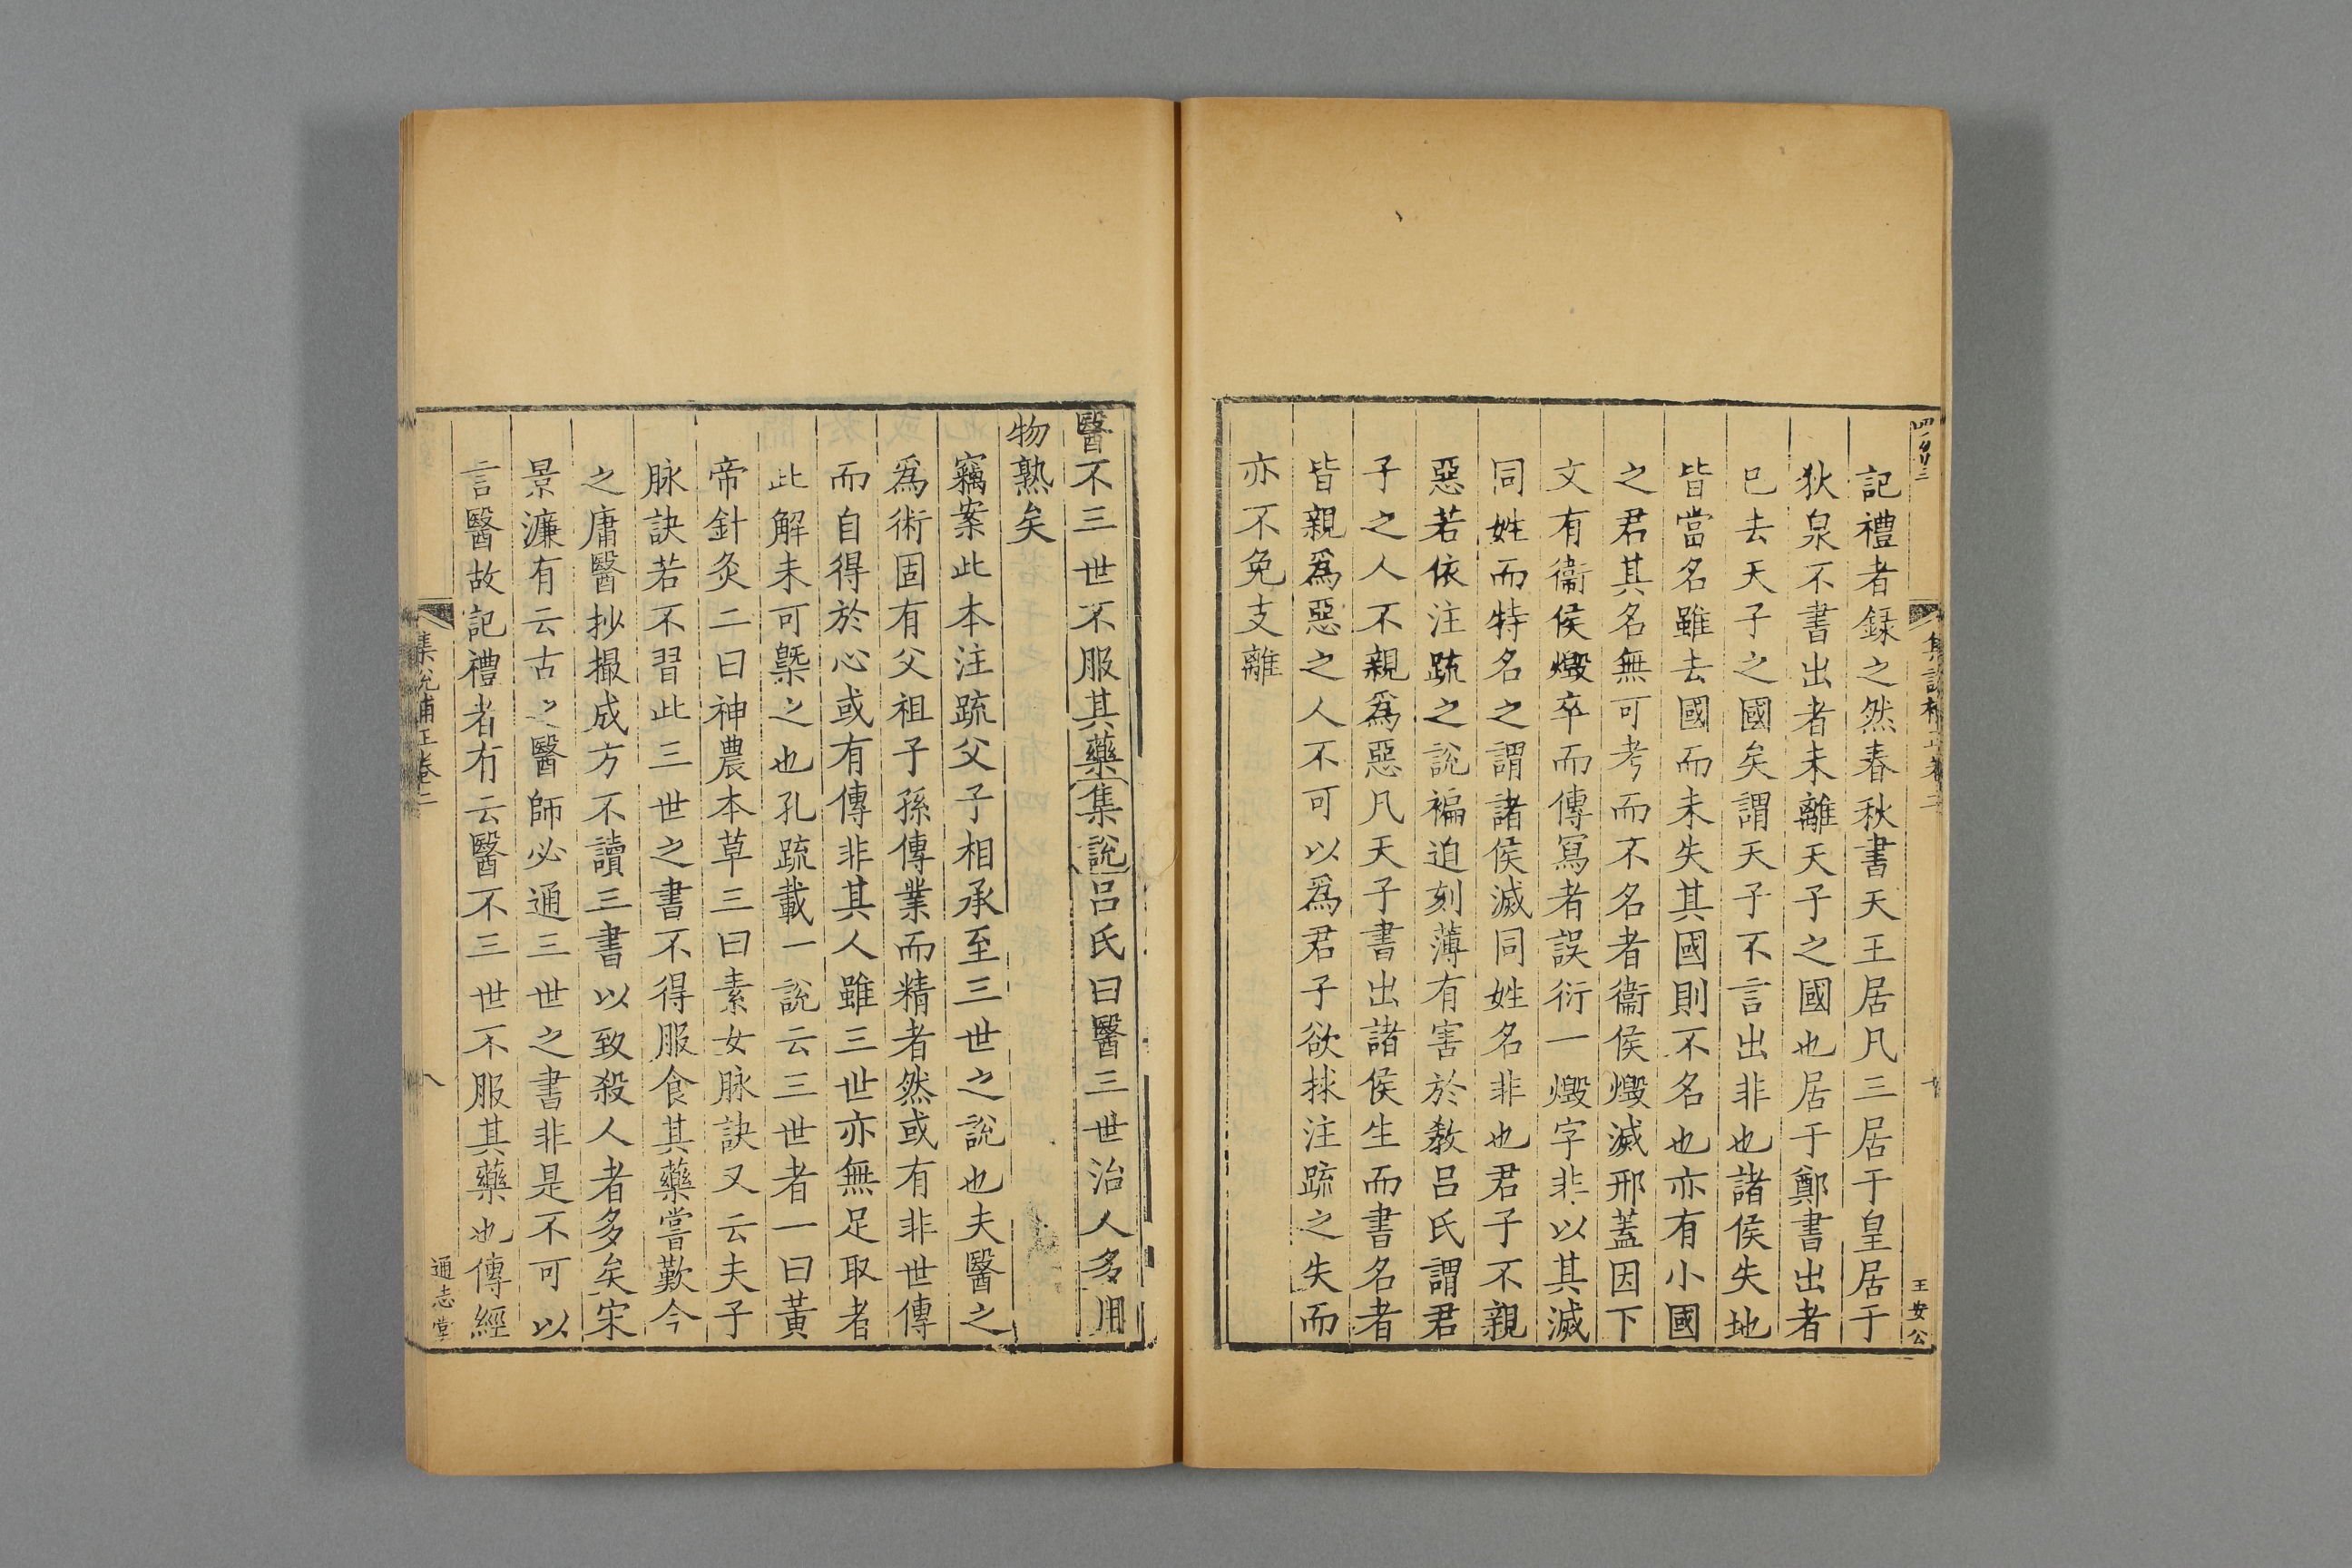 記禮者録之然春秋書天王居凡三居于皇居于
狄泉不書出者未離天子之國也居于鄭書出者
已去天子之國矣謂天子不言出非也諸侯失地
皆當名雖去國而未失其國則不名也亦有小國
之君其名無可考而不名者衞侯燬滅邢蓋因下
文有衞侯燬卒而傳冩者誤衍一燬字非以其滅
同姓而特名之謂諸侯滅同姓名非也君子不親
惡若依注䟽之說褊迫刻薄有害於教吕氏謂君
子之人不親爲惡凡天子書出諸侯生而書名者
皆親爲惡之人不可以爲君子欲捄注䟽之失而
亦不免支離
王安公
醫不三世不服其藥集說吕氏曰醫三世治人多用
物熟矣
竊案此本注䟽父子相承至三世之說也夫醫之
爲術固有父祖子孫傳業而精者然或有非世傳
而自得於心或有傳非其人雖三世亦無足取者
此解未可槩之也孔䟽載一說云三世者一曰黃
帝針灸二曰神農本草三曰素女脉訣又云夫子
脉訣若不習此三世之書不得服食其藥嘗歎今
之庸醫抄撮成方不讀三書以致殺人者多矣宋
景濂有云古之醫師必通三世之書非是不可以
言醫故記禮者有云醫不三世不服其藥也傳經
集說補正卷二
八
通志堂